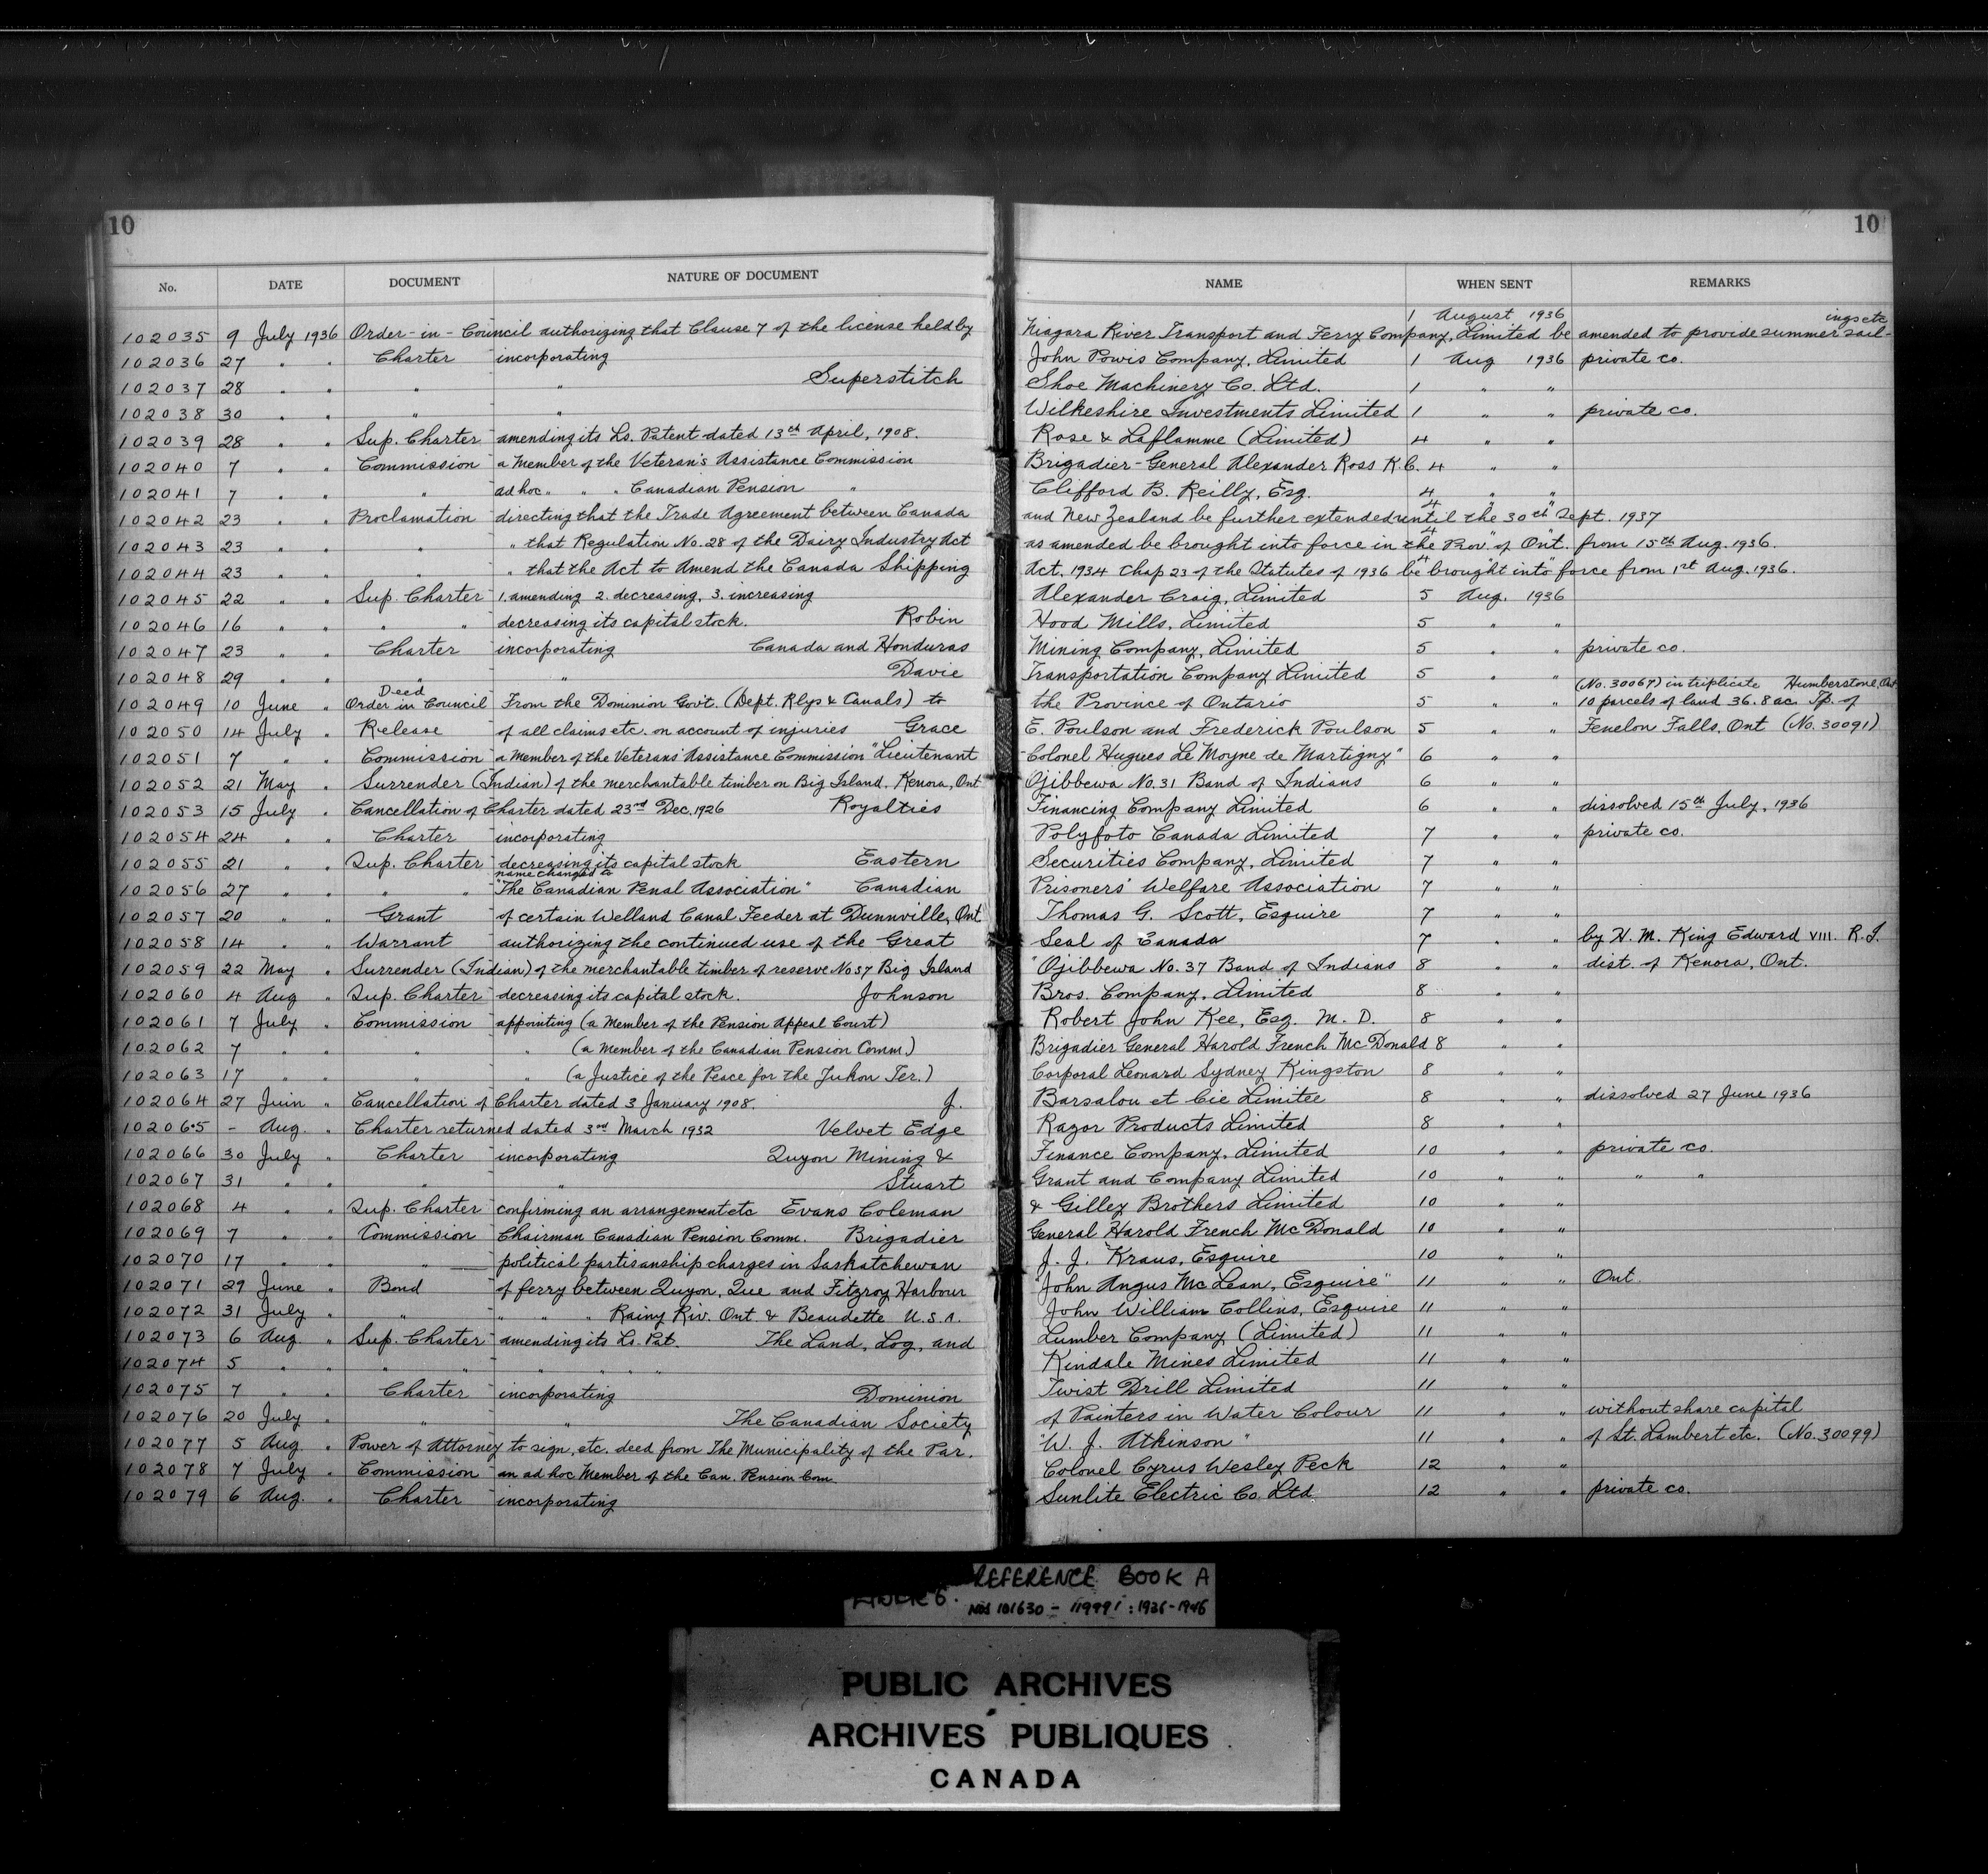 10
10
No. DATE DOCUMENT NATURE OF DOCUMENT NAME WHEN SENT REMARKS
1 August 1936 ings etc
102035 9 July 1936 Order-in-Council authorizing that Clause 7 of the license held by Niagara River Transport and Ferry Company, Limited be amended to provide summer sail-
102036 27 " " Charter incorporating John Powis Company, Limited 1 Aug 1936 private co.
102037 28 " " " " Superstitch Shoe Machinery Co. Ltd. 1 " "
102038 30 " " " " Wilkeshire Investments Limited 1 " " private co.
102039 28 " " Sup. Charter amending its Ls. Patent dated 13th April, 1908. Rose & Laflamme (Limited) 4 " "
102040 7 " " Commission a Member of the Veteran's Assistance Commission Brigadier-General Alexander Ross K.C. 4 " "
102041 7 " " " ad hoc " " " Canadian Pension " Clifford B. Reilly, Esq. 4 " "
102042 23 " " Proclamation directing that the Trade Agreement between Canada and New Zealand be further extended until the 30th Sept. 1937 4 " "
102043 23 " " " " that Regulation No. 28 of the Dairy Industry Act as amended be brought into force in the Prov. of Ont. from 15th Aug. 1936. 4 "
102044 23 " " " " that the Act to Amend the Canada Shipping Act, 1934 Chap 23 of the Statutes of 1936 be brought into force from 1st Aug. 1936. 4
102045 22 " " Sup. Charter 1. amending 2. decreasing, 3. increasing Alexander Craig, Limited 5 Aug. 1936
102046 16 " " " " decreasing its capital stock. Robin Hood Mills, Limited 5 " "
102047 23 " " Charter incorporating Canada and Honduras Mining Company, Limited 5 " " private co.
102048 29 " " " " Davie Transportation Company Limited 5 " "
Deed (No. 30067) in triplicate Humberstone, Ont
102049 10 June " Order in Council From the Dominion Govt. (Dept. Rlys & Canals) to the Province of Ontario 5 " " 10 parcels of land 36.8 ac. Tp. of
102050 14 July " Release of all claims etc. on account of injuries Grace E. Poulson and Frederick Poulson 5 " " Fenelon Falls, Ont (No. 30091)
102051 7 " " Commission a Member of the Veterans' Assistance Commission "Lieutenant Colonel Hugues Le Moyne de Martigny" 6 " "
102052 21 May " Surrender (Indian) of the merchantable timber on Big Island, Kenora, Ont Ojibbewa No. 31 Band of Indians 6 " "
102053 15 July " Cancellation of Charter dated 23rd Dec. 1926 Royalties Financing Company Limited 6 " " dissolved 15th July, 1936
102054 24 " " Charter incorporating Polyfoto Canada Limited 7 " " private co.
102055 21 " " Sup. Charter decreasing its capital stock Eastern Securities Company, Limited 7 " "
name changed to
102056 27 " " " " "The Canadian Penal Association" Canadian Prisoners' Welfare Association 7 " "
102057 20 " " Grant of certain Welland Canal Feeder at Dunnville, Ont Thomas G. Scott, Esquire 7 " "
102058 14 " " Warrant authorizing the continued use of the Great Seal of Canada 7 " " by H. M. King Edward VIII. R.I.
102059 22 May " Surrender (Indian) of the merchantable timber of reserve No 37 Big Island "Ojibbewa No. 37 Band of Indians 8 " " dist. of Kenora, Ont.
102060 4 Aug " Sup. Charter decreasing its capital stock. Johnson Bros. Company, Limited 8 " "
102061 7 July " Commission appointing (a Member of the Pension Appeal Court) Robert John Kee, Esq. M. D. 8 " "
102062 7 " " " " (a Member of the Canadian Pension Comm.) Brigadier General Harold French McDonald 8 " "
102063 17 " " " " (a Justice of the Peace for the Yukon Ter.) Corporal Leonard Sydney Kingston 8 " "
102064 27 Juin " Cancellation of Charter dated 3 January 1908. J. Barsalou et Cie Limitee 8 " " dissolved 27 June 1936
102065 - Aug. " Charter returned dated 3rd March 1932 Velvet Edge Razor Products Limited 8 " "
102066 30 July " Charter incorporating Quyon Mining & Finance Company, Limited 10 " " private co.
102067 31 " " " " Stuart Grant and Company Limited 10 " " " "
102068 4 " " Sup. Charter confirming an arrangement etc Evans Coleman & Gilley Brothers Limited 10 " "
102069 7 " " Commission Chairman Canadian Pension Comm. Brigadier General Harold French McDonald 10 " "
102070 17 " " " political partisanship charges in Saskatchewan J. J. Kraus, Esquire 10 " "
102071 29 June " Bond of ferry between Quyon, Que and Fitzroy Harbour "John Angus McLean, Esquire" 11 " " Ont.
102072 31 July " " " " " Rainy Riv. Ont. & Beaudette U.S.A. John William Collins, Esquire 11 " "
102073 6 Aug. " Sup. Charter amending its Ls. Pat. The Land, Log, and Lumber Company (Limited) 11 " "
102074 5 " " " " " " " " Kindale Mines Limited 11 " "
102075 7 " " Charter incorporating Dominion Twist Drill Limited 11 " "
102076 20 July " " " The Canadian Society of Painters in Water Colour 11 " " without share capital
102077 5 Aug. " Power of Attorney to sign, etc. deed from The Municipality of the Par. "W. J. Atkinson" 11 " " of St. Lambert etc. (No. 30099)
102078 7 July " Commission an ad hoc Member of the Can. Pension Com. Colonel Cyrus Wesley Peck 12 " "
102079 6 Aug. " Charter incorporating Sunlite Electric Co Ltd 12 " " private co.
REFERENCE BOOK A
NOS 101630 - 119991 : 1936-1946
PUBLIC ARCHIVES
ARCHIVES PUBLIQUES
CANADA